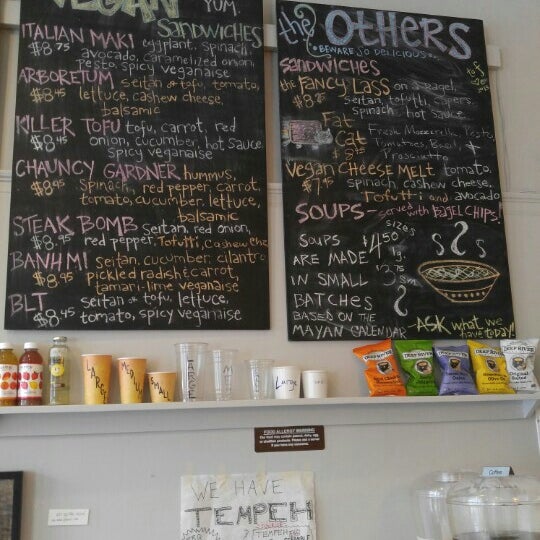 VEGAN YUM.
SANDWICHES
ITALIAN MAKI eggplant, spinach,
$8.75 avocado, caramelized onion,
pesto, spicy veganaise
ARBORETUM seitan or tofu, tomato,
$8.45 lettuce, cashew cheese,
balsamic
KILLER TOFU tofu, carrot, red
$8.45 onion, cucumber, hot sauce
spicy veganaise
CHAUNCY GARDNER hummus,
$8.45 spinach, red pepper, carrot,
tomato, cucumber, lettuce,
balsamic
STEAK BOMB seitan, red onion,
$8.95 red pepper, Tofutti, cashew che
BANH MI seitan, cucumber, cilantro
$8.95 pickled radish & carrot,
tamari-lime veganaise
BLT seitan or tofu, lettuce,
$8.45 tomato, spicy veganaise
the OTHERS
BEWARE SO DELICIOUS...
SANDWICHES
the FANCY LASS on a bagel,
seitan, tofutti, capers,
spinach, hot sauce
Fat Cat
Fresh Mozzarella, Pesto,
Tomatoes, Basil, &
Prosciutto
VEGAN CHEESE MELT tomato,
$7.45 spinach, cashew cheese,
Tofutti and avocado
SOUPS - served with BAGEL CHIPS!
SOUPS
ARE MADE
IN SMALL
BATCHES
BASED ON THE
MAYAN CALENDAR
SIZES
$4.50 lg.
$2.75 sm.
S S S
-ASK what we
have today!
LARGE
MEDIUM
SMALL
Large
DEEP RIVER
DEEP RIVER
DEEP RIVER
DEEP RIVER
DEEP RIVER
FOOD ALLERGY WARNING
WE HAVE
TEMPEH
TEMPEH
Coffee